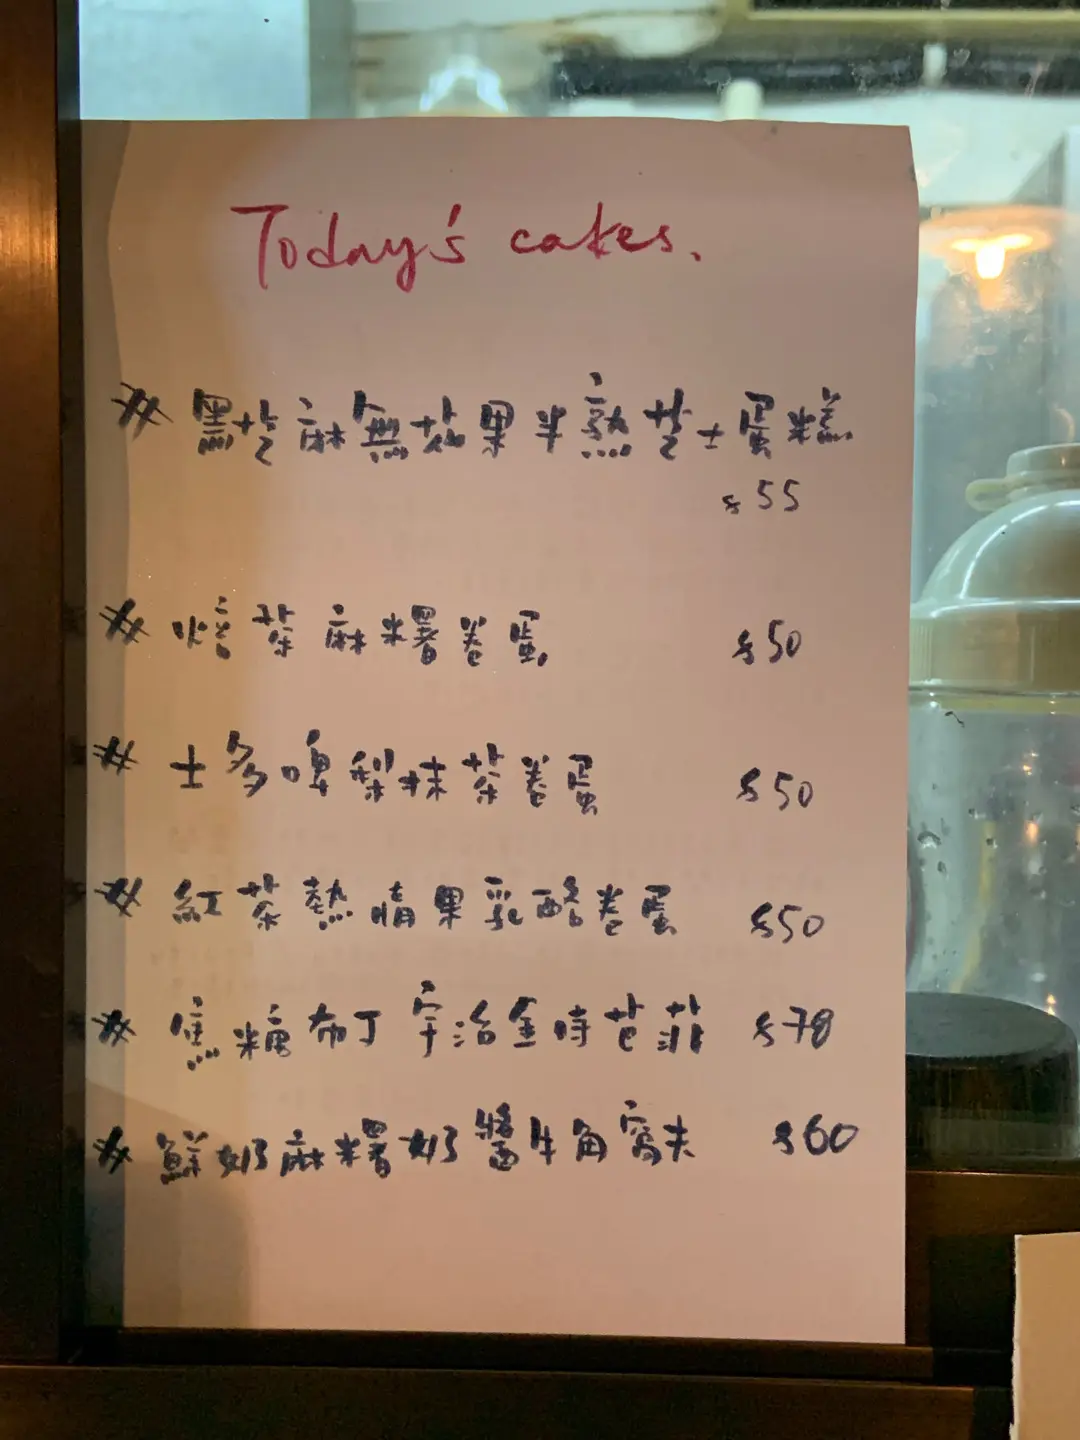 Today's cakes.
# 黑芝麻無花果半熟芝士蛋糕
$55
# 焙茶麻糬卷蛋 $50
# 士多啤梨抹茶卷蛋 $50
# 紅茶熱情果乳酪卷蛋 $50
# 焦糖布丁宇治金時芭菲 $78
# 鮮奶麻糬奶醬牛角窩夫 $60